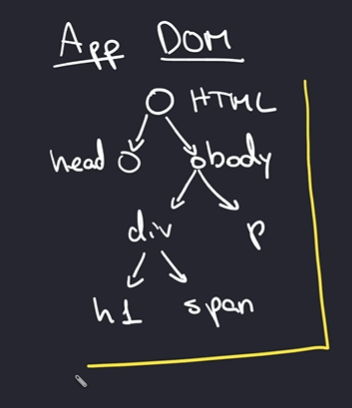 App DOM
HTML
head body
div p
h1 span